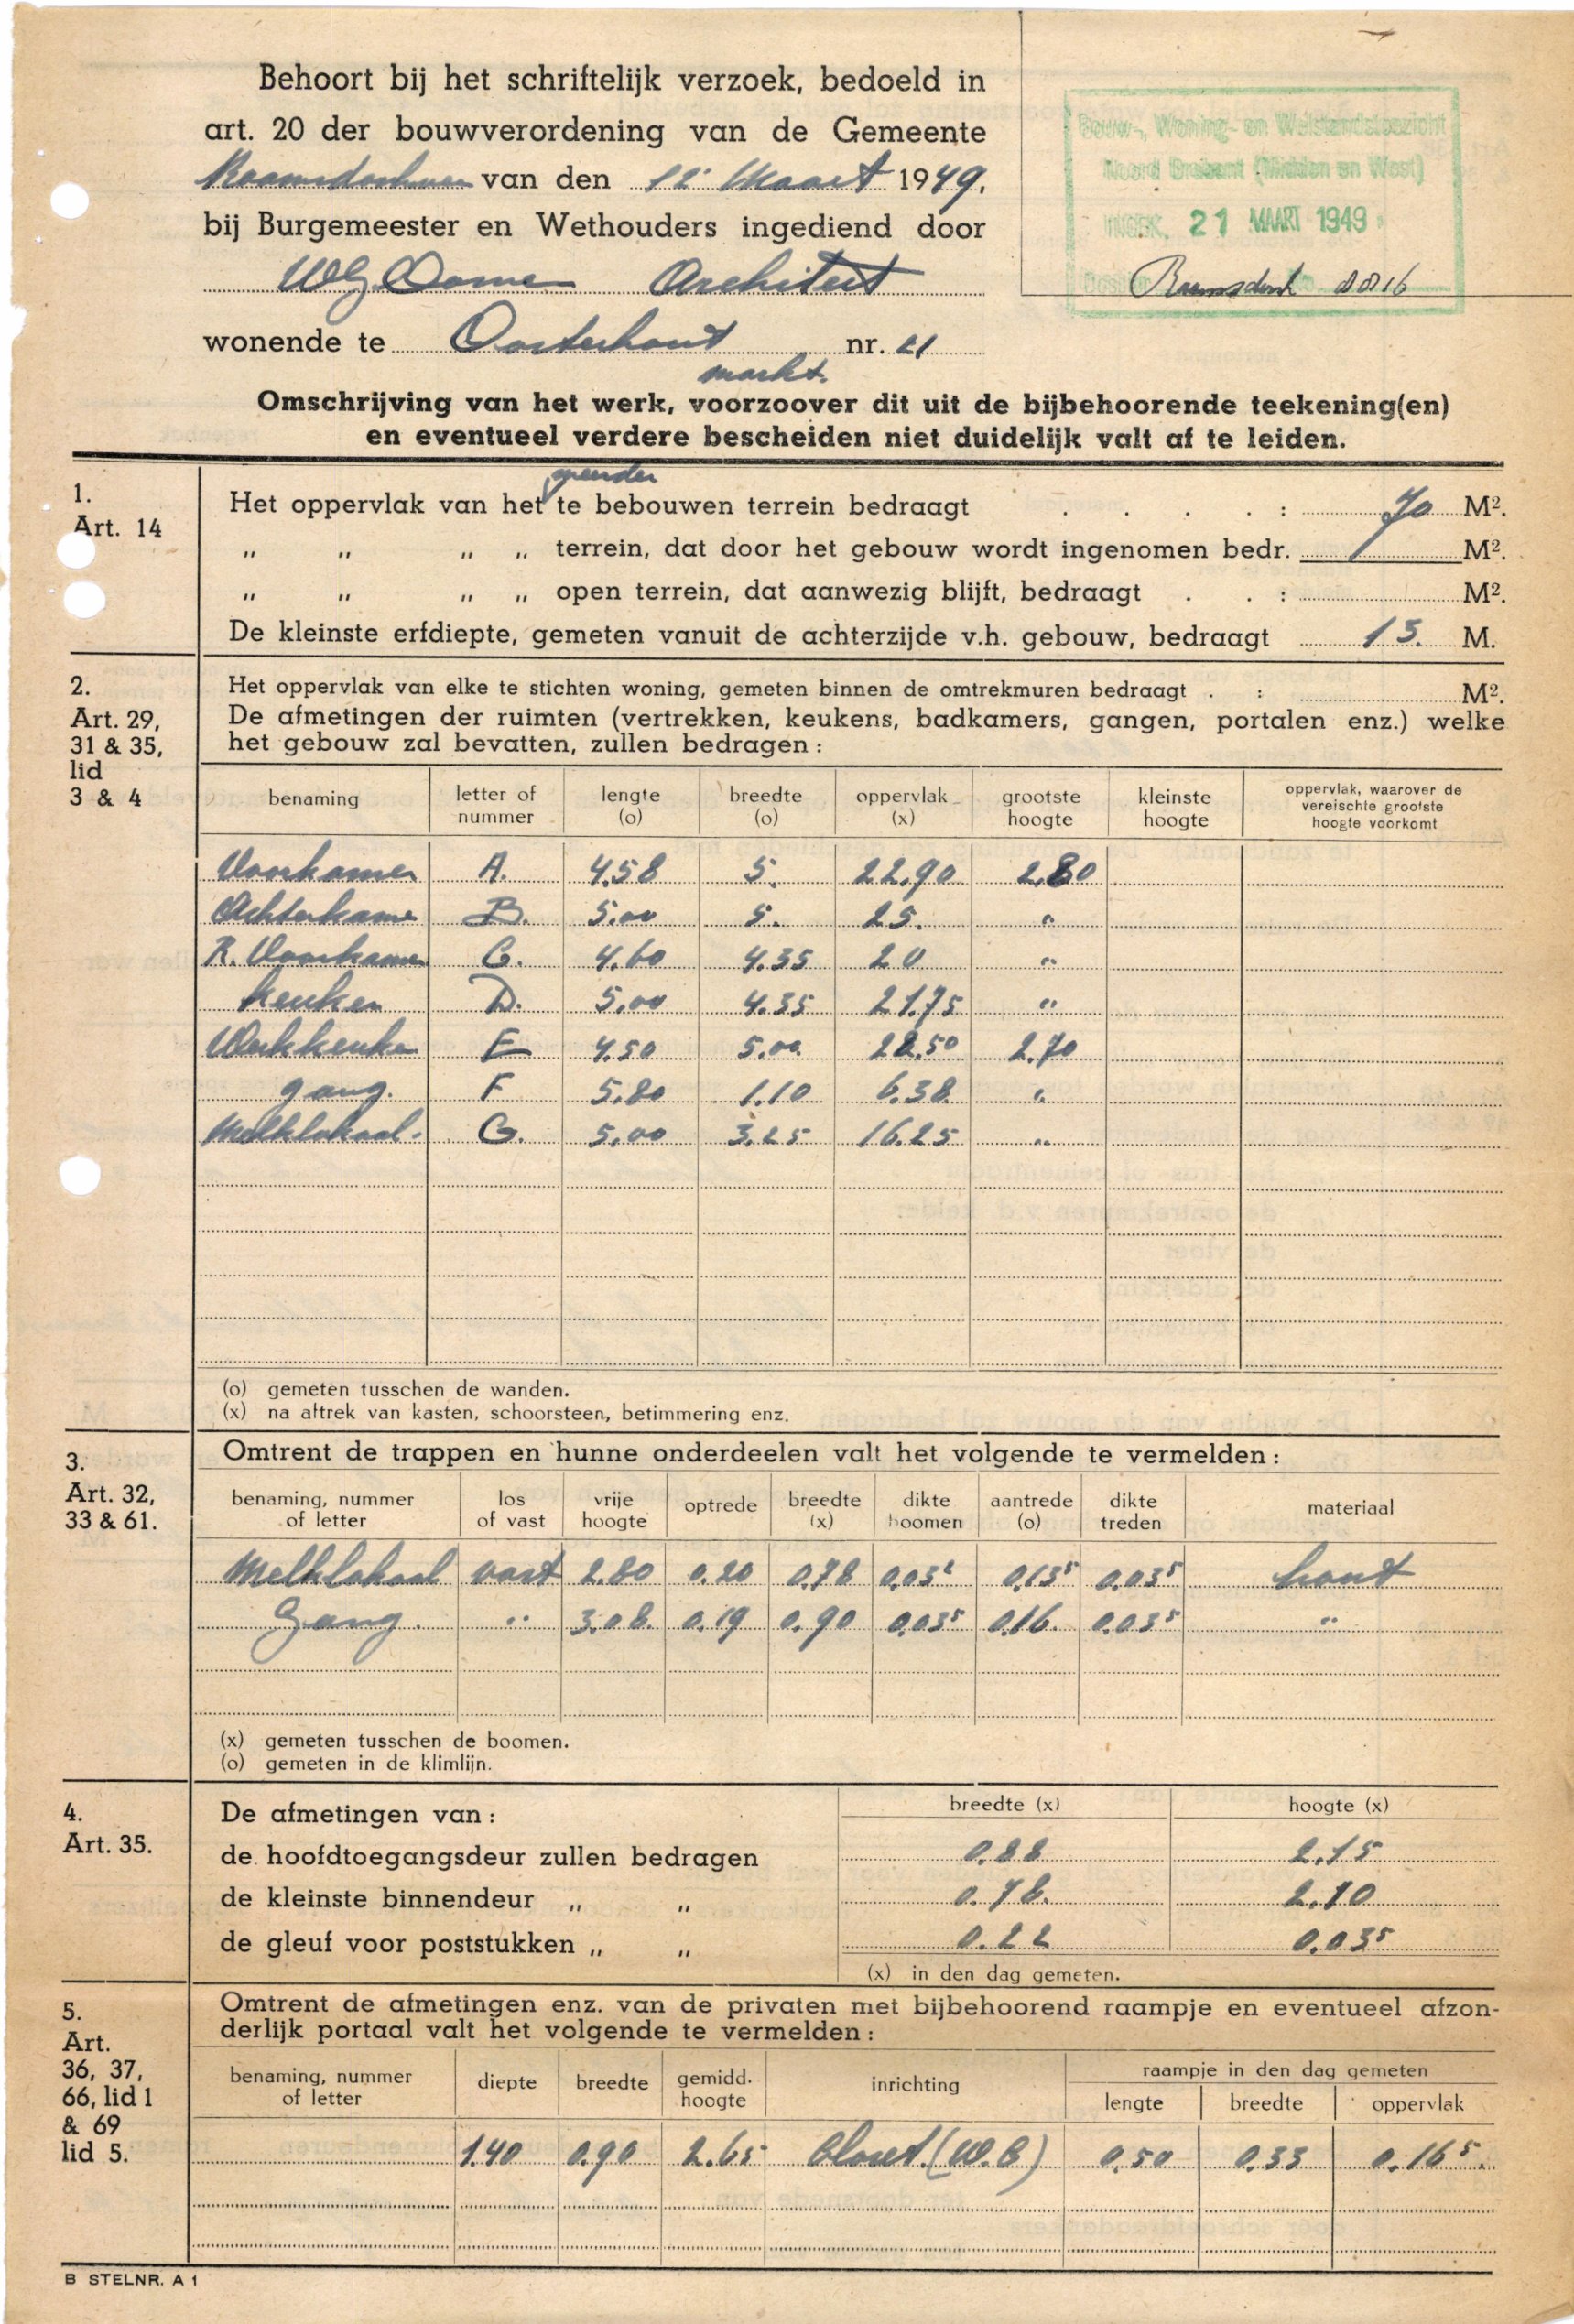 Behoort bij het schriftelijk verzoek, bedoeld in
art. 20 der bouwverordening van de Gemeente
van den 12 Maart 1949.
bij Burgemeester en Wethouders ingediend door
Architect
wonende te Oosterhout nr. 21
markt.
Bouw-, Woning- en Welstandstoezicht
Noord Brabant (Midden en West)
INGEK. 21 MAART 1949
Omschrijving van het werk, voorzoover dit uit de bijbehoorende teekening(en)
en eventueel verdere bescheiden niet duidelijk valt af te leiden.
1.
Art. 14
Het oppervlak van het te bebouwen terrein bedraagt . . . . : 70 M².
„ „ „ „ terrein, dat door het gebouw wordt ingenomen bedr. M².
„ „ „ „ open terrein, dat aanwezig blijft, bedraagt . . : M².
De kleinste erfdiepte, gemeten vanuit de achterzijde v.h. gebouw, bedraagt 15. M.
2.
Art. 29,
31 & 35,
lid
3 & 4
Het oppervlak van elke te stichten woning, gemeten binnen de omtrekmuren bedraagt . : M².
De afmetingen der ruimten (vertrekken, keukens, badkamers, gangen, portalen enz.) welke
het gebouw zal bevatten, zullen bedragen :
benaming letter of nummer lengte (o) breedte (o) oppervlak (x) grootste hoogte kleinste hoogte oppervlak, waarover de vereischte grootste hoogte voorkomt
Voorkamer A. 4.58 5. 22.90 2.80
Achterkamer B. 5.00 5. 25. "
R. Voorkamer C. 4.60 4.35 20 "
Keuken D. 5.00 4.35 21.75 "
Werkkeuken E 4.50 5.00 22.50 2.70
gang. F 5.80 1.10 6.38 "
Melklokaal. G. 5.00 3.25 16.25 "
(o) gemeten tusschen de wanden.
(x) na aftrek van kasten, schoorsteen, betimmering enz.
3.
Art. 32,
33 & 61.
Omtrent de trappen en hunne onderdeelen valt het volgende te vermelden :
benaming, nummer of letter los of vast vrije hoogte optrede breedte (x) dikte boomen aantrede (o) dikte treden materiaal
Melklokaal vast 2.80 0.20 0.78 0.135 0.035 hout
Gang. " 3.08. 0.19 0.90 0.035 0.16. 0.035 "
(x) gemeten tusschen de boomen.
(o) gemeten in de klimlijn.
4.
Art. 35.
De afmetingen van : breedte (x) hoogte (x)
de hoofdtoegangsdeur zullen bedragen 0.88 2.15
de kleinste binnendeur „ „ 0.78. 2.10
de gleuf voor poststukken „ „ 0.22 0.035
(x) in den dag gemeten.
5.
Art.
36, 37,
66, lid 1
& 69
lid 5.
Omtrent de afmetingen enz. van de privaten met bijbehoorend raampje en eventueel afzon-
derlijk portaal valt het volgende te vermelden :
benaming, nummer of letter diepte breedte gemidd. hoogte inrichting raampje in den dag gemeten
lengte breedte oppervlak
1.40 0.90 2.65 Closet. (W.C) 0.50 0.33 0.165.
B STELNR. A 1